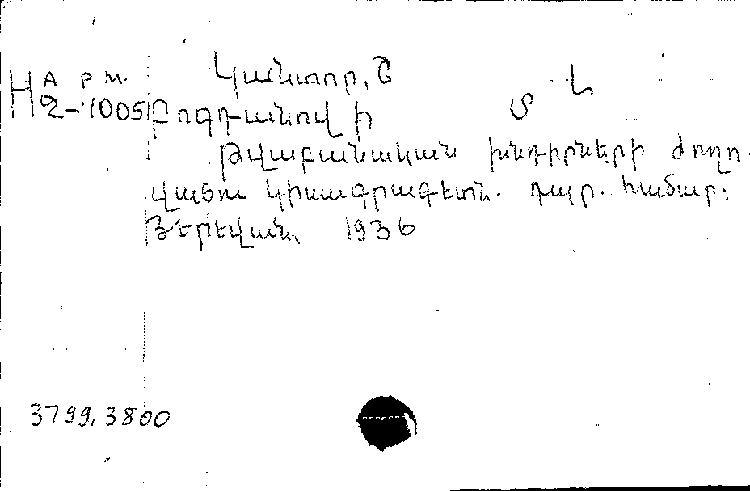 А р м.
H 2-1005
Կանտոր, Շ
Բոգդանով Ի
Տ Ն
Թվաբանական խնդիրների ժողո-
վածու կիսագրագետն. դպր. համար:
Յերեվան, 1936
3799, 3800